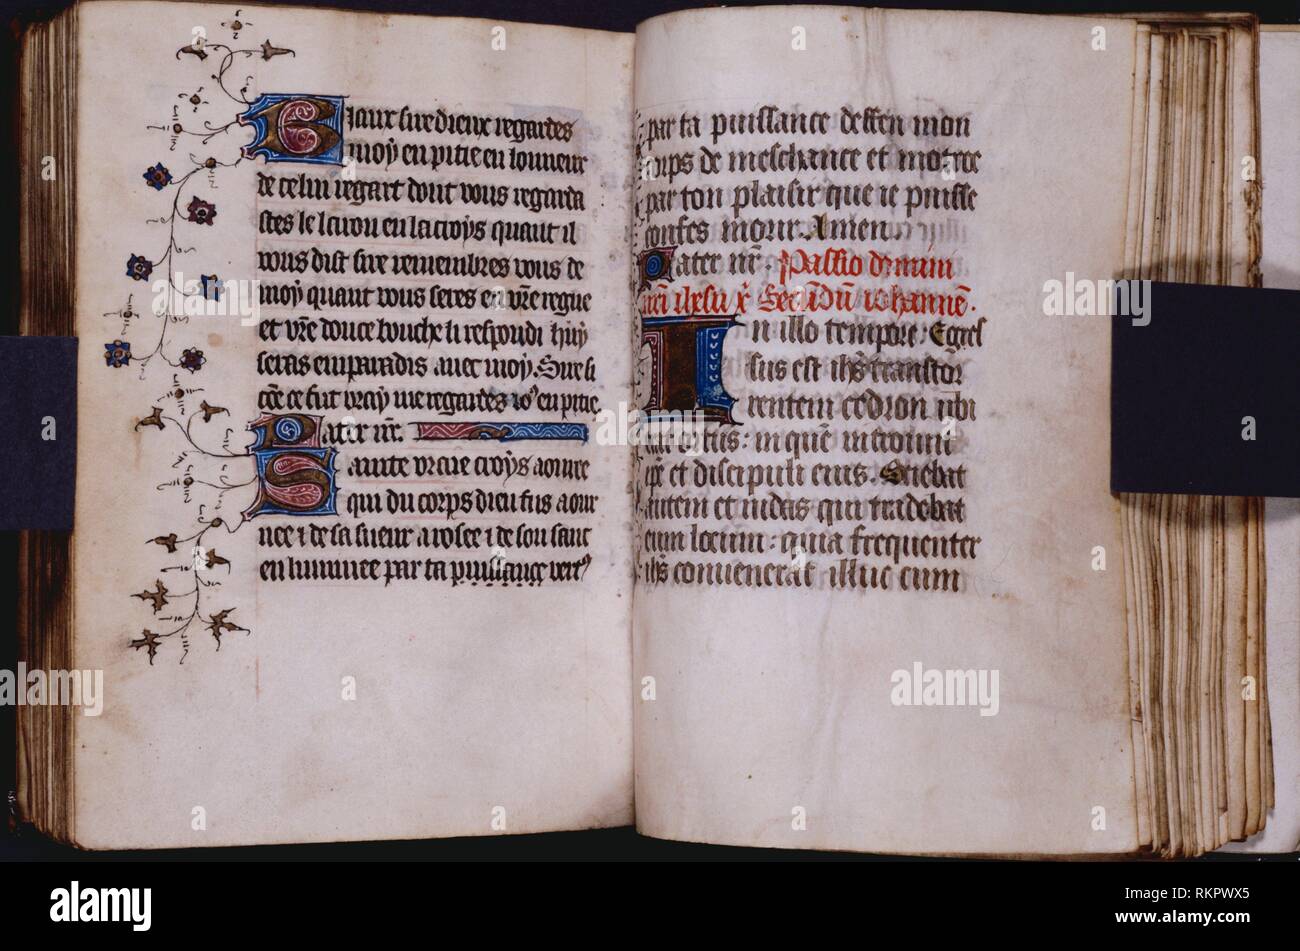 Biaux sire dieux regardes
moy en pitie en lonneur
de celui regart dont vous regarda
stes le larron en la croys quant il
vous dist sire remembres vous de
moy quant vous seres en vre regne
et vre douce bouche li respondi huy
seras en paradis avec moy. Sire si
cõe ce fut vray me regardes io9 en pitie.
Pater nr.
Sainte vraie croys aouree
qui du corps dieu fus aour
nee ⁊ de sa sueur arosee ⁊ de son sanc
enluminee par ta puissance vert9
par ta puissance deffen mon
corps de meschance et motroe
par ton plaisir que ie puisse
confes morir. Amen.
Pater nr. Passio domini
nri ihesu x secūdū iohannē.
In illo tempore: Egres
sus est ihs trans tor
rentem cedron ubi
erat ortus: in quē introivit
ipe et discipuli eius. Sciebat
autem et iudas qui tradebat
eum locum: quia frequenter
ihs convenerat illuc cum
alamy
Image ID: RKPWX5
www.alamy.com